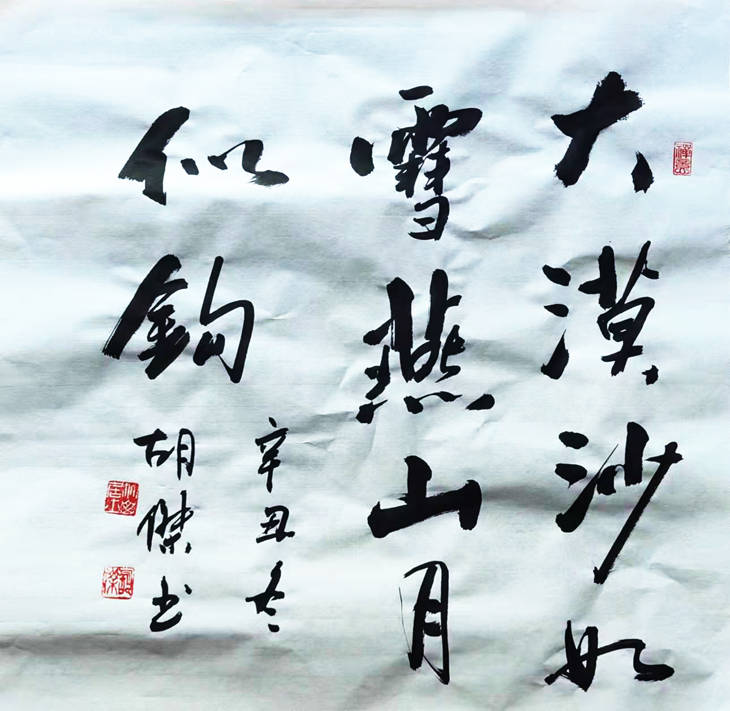 大漠沙如
雪燕山月
似鈎
辛丑冬
胡傑书